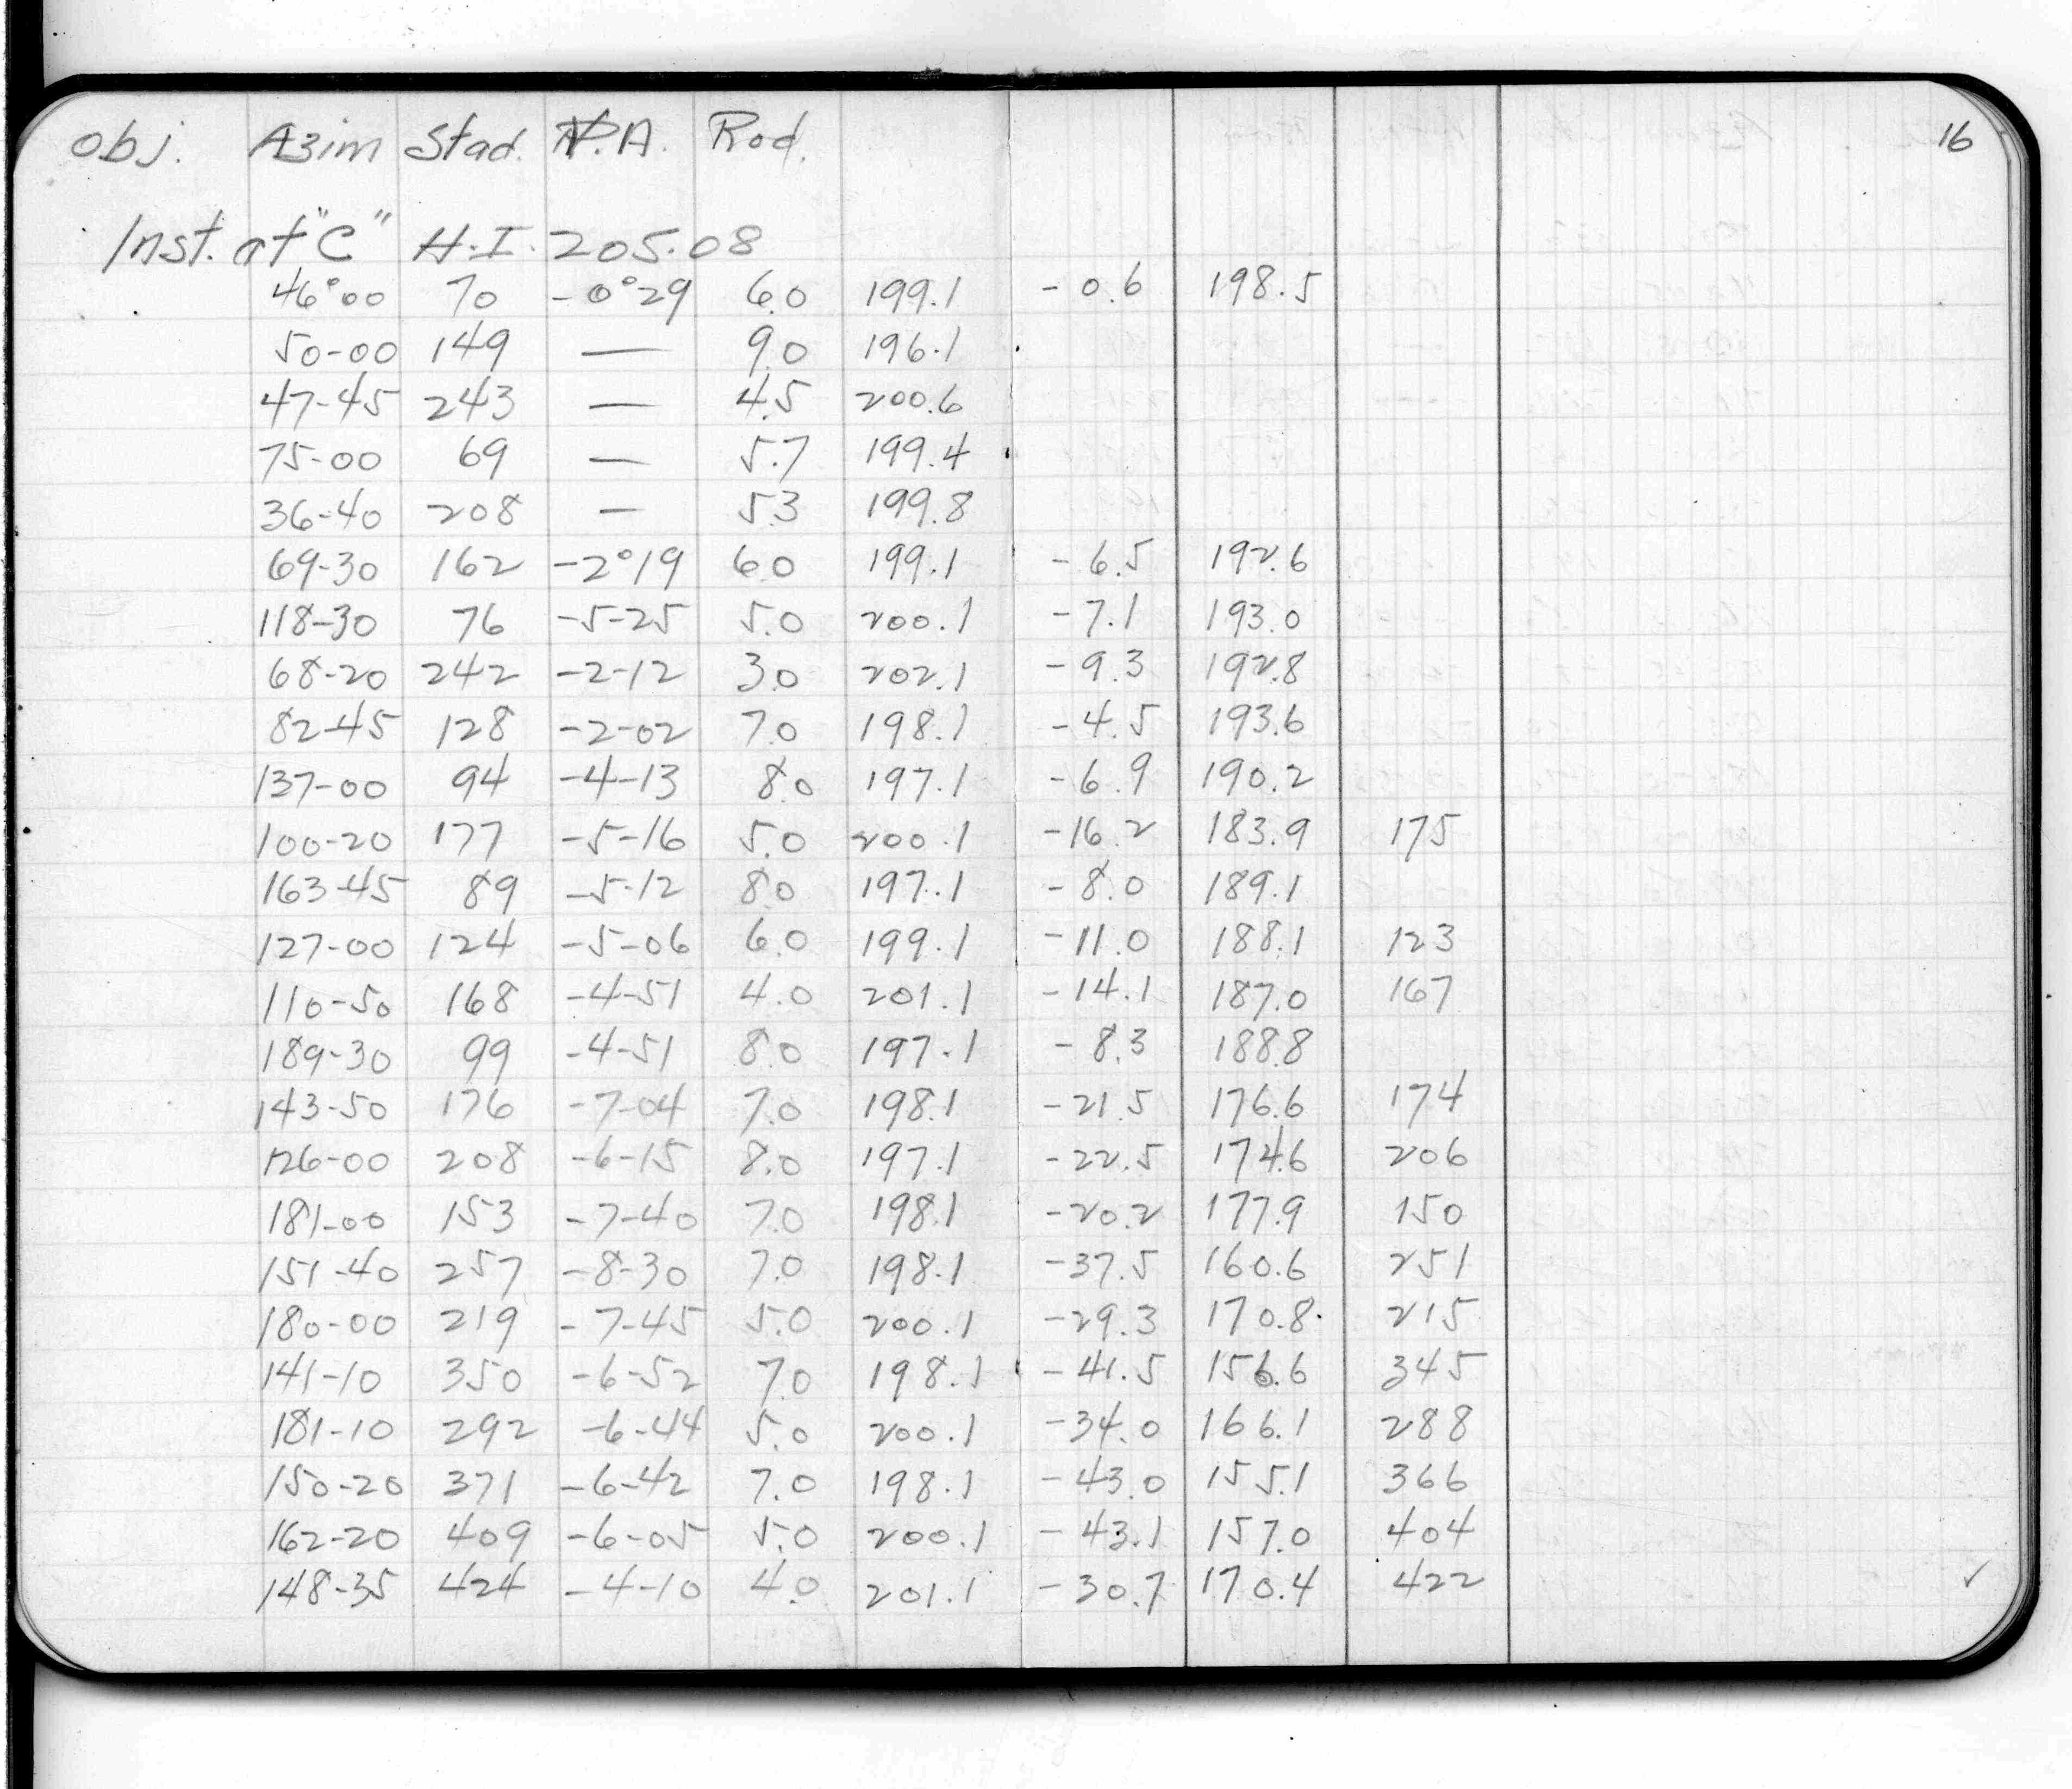 16
Obj. Azim Stad. V.A. Rod.
Inst. at "C" H.I. 205.08
46°00 70 -0°29 6.0 199.1 -0.6 198.5
50-00 149 — 9.0 196.1
47-45 243 — 4.5 200.6
75-00 69 — 5.7 199.4
36-40 208 — 5.3 199.8
69-30 162 -2°19 6.0 199.1 -6.5 192.6
118-30 76 -5-25 5.0 200.1 -7.1 193.0
68-20 242 -2-12 3.0 202.1 -9.3 192.8
82-45 128 -2-02 7.0 198.1 -4.5 193.6
137-00 94 -4-13 8.0 197.1 -6.9 190.2
100-20 177 -5-16 5.0 200.1 -16.2 183.9 175
163-45 89 -5-12 8.0 197.1 -8.0 189.1
127-00 124 -5-06 6.0 199.1 -11.0 188.1 123
110-50 168 -4-51 4.0 201.1 -14.1 187.0 167
189-30 99 -4-51 8.0 197.1 -8.3 188.8
143-50 176 -7-04 7.0 198.1 -21.5 176.6 174
126-00 208 -6-15 8.0 197.1 -22.5 174.6 206
181-00 153 -7-40 7.0 198.1 -20.2 177.9 150
151-40 257 -8-30 7.0 198.1 -37.5 160.6 251
180-00 219 -7-45 5.0 200.1 -29.3 170.8 215
141-10 350 -6-52 7.0 198.1 -41.5 156.6 345
181-10 292 -6-44 5.0 200.1 -34.0 166.1 288
150-20 371 -6-42 7.0 198.1 -43.0 155.1 366
162-20 409 -6-05 5.0 200.1 -43.1 157.0 404
148-35 424 -4-10 4.0 201.1 -30.7 170.4 422 ✓